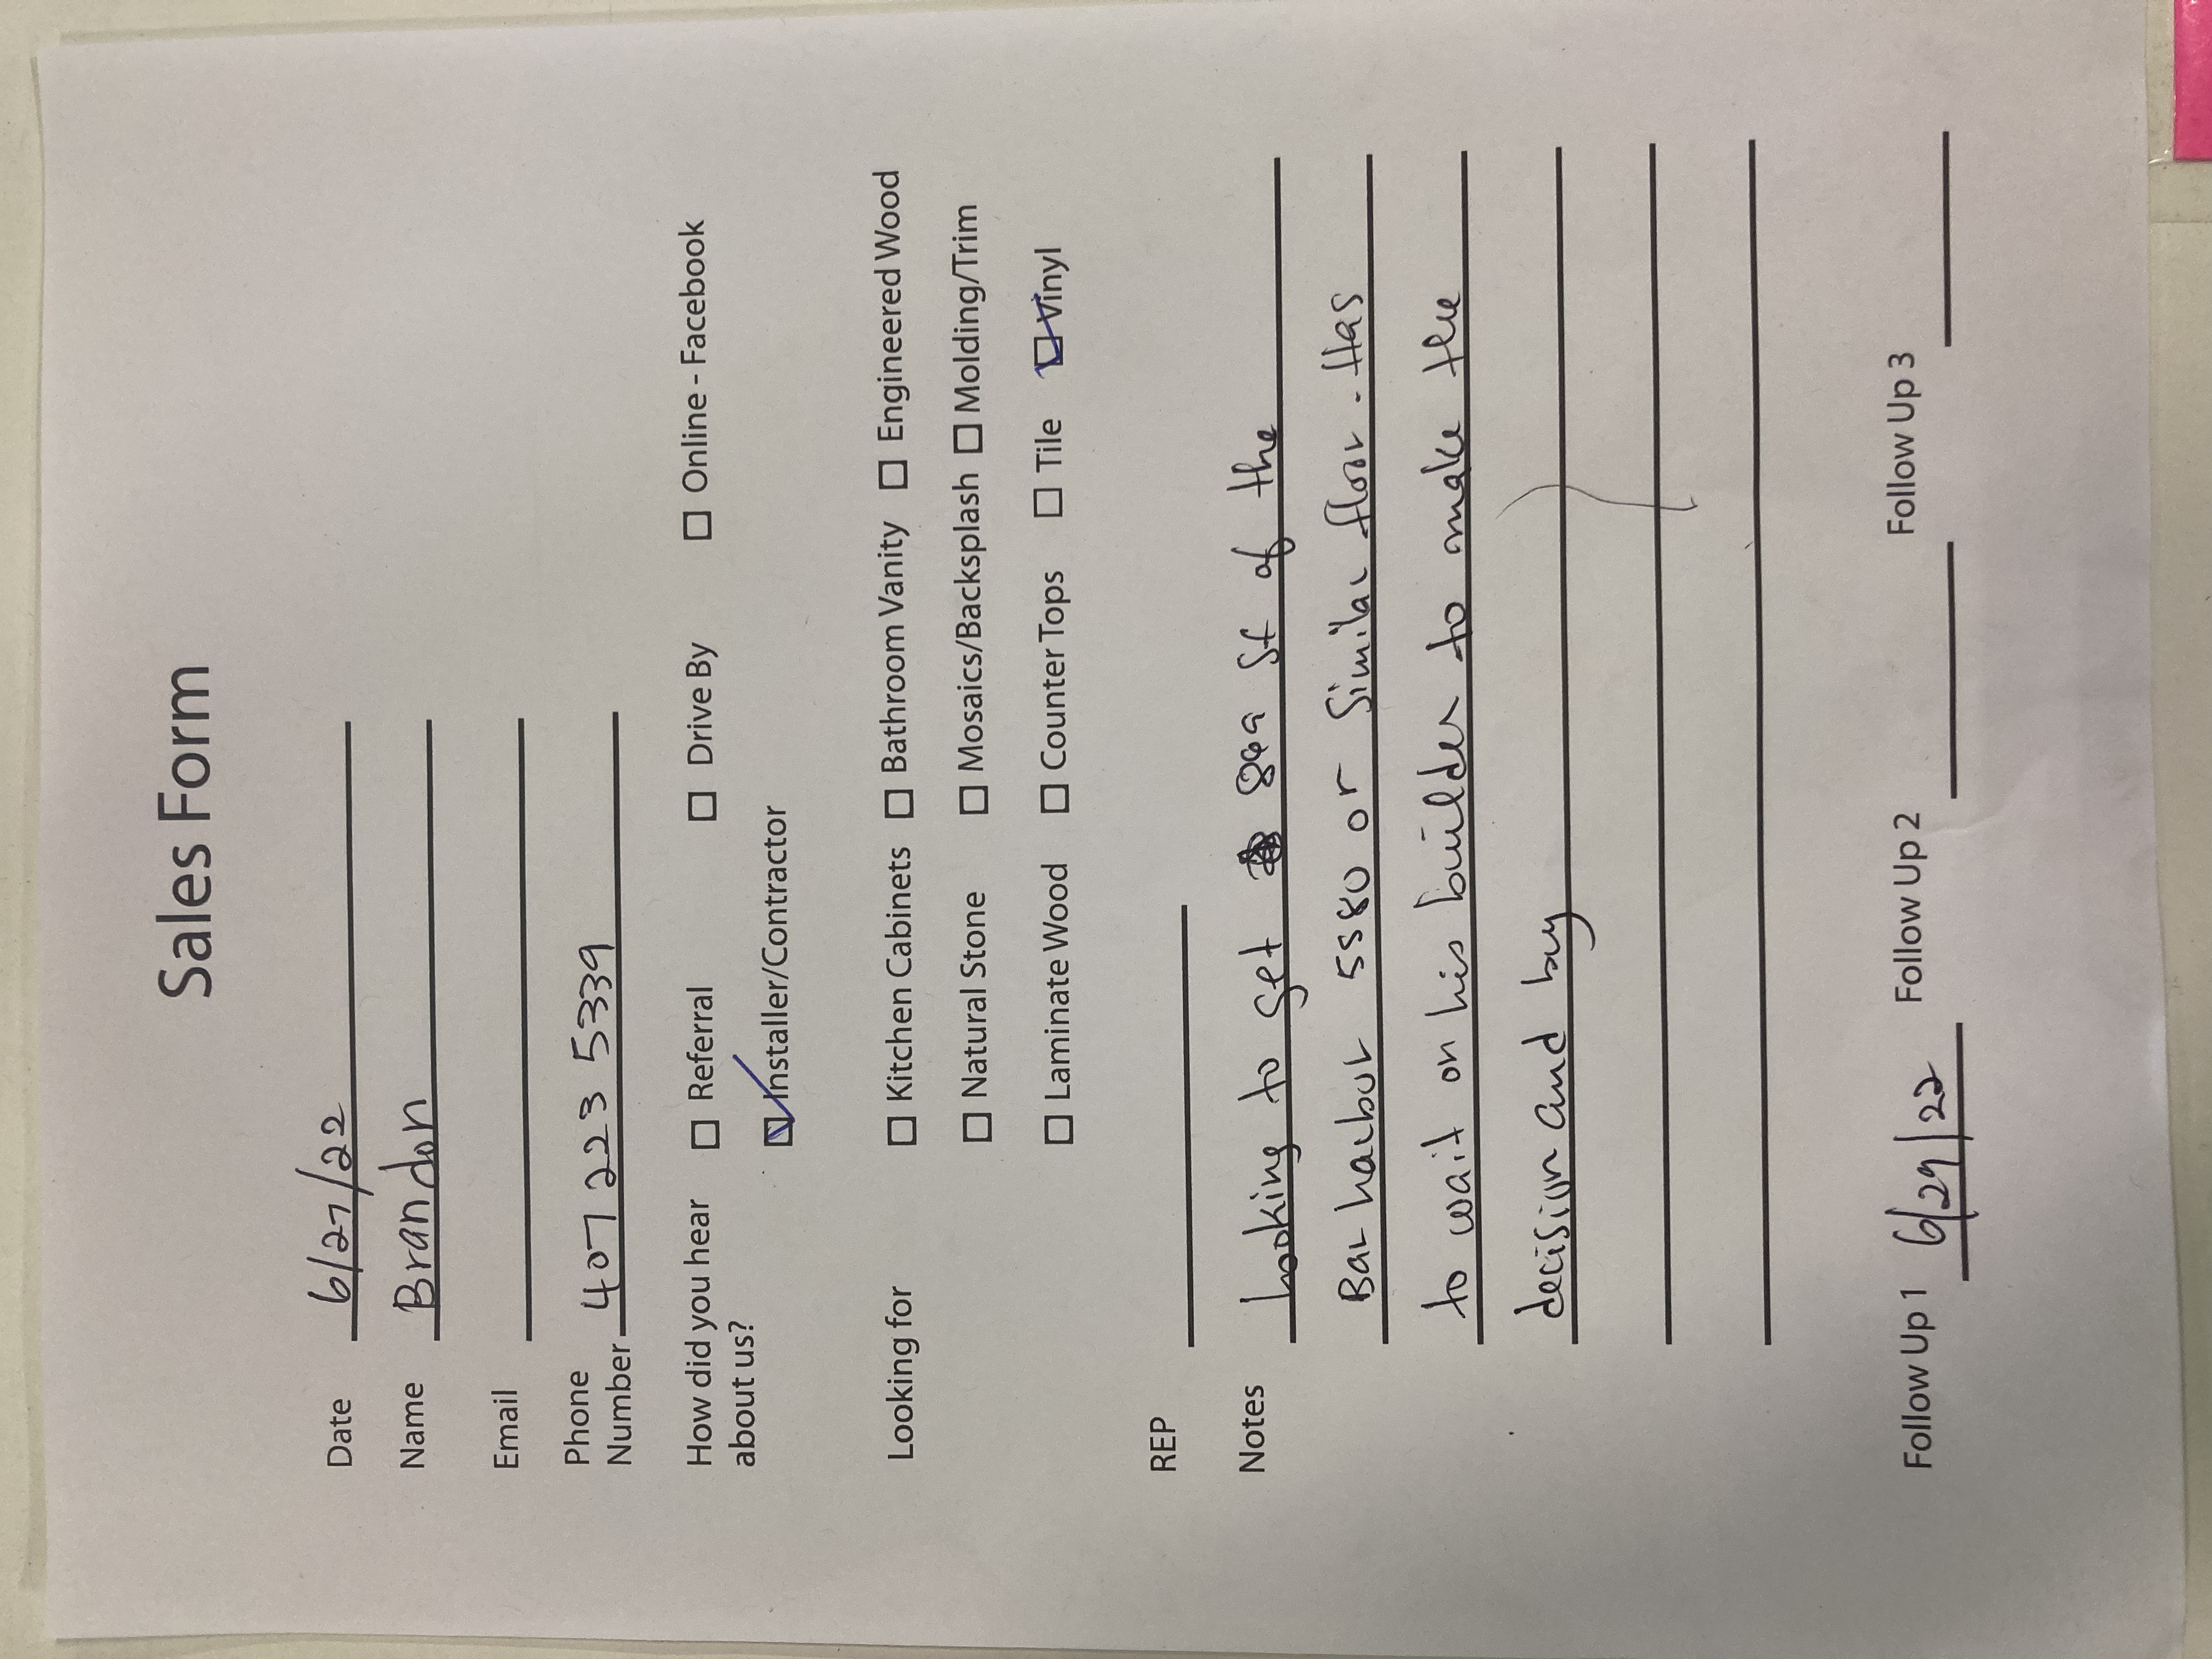 Sales Form
Date 6/27/22
Name Brandon
Email
Phone
Number 407 223 5339
How did you hear ☐ Referral ☐ Drive By ☐ Online - Facebook
about us? ☑ Installer/Contractor
Looking for ☐ Kitchen Cabinets ☐ Bathroom Vanity ☐ Engineered Wood
☐ Natural Stone ☐ Mosaics/Backsplash ☐ Molding/Trim
☐ Laminate Wood ☐ Counter Tops ☐ Tile ☑ Vinyl
REP
Notes Looking to get sf of the
Bar harbor 5580 or Similar floor. Has
to wait on his builder to make the
decision and buy
Follow Up 1 6/29/22 Follow Up 2 Follow Up 3